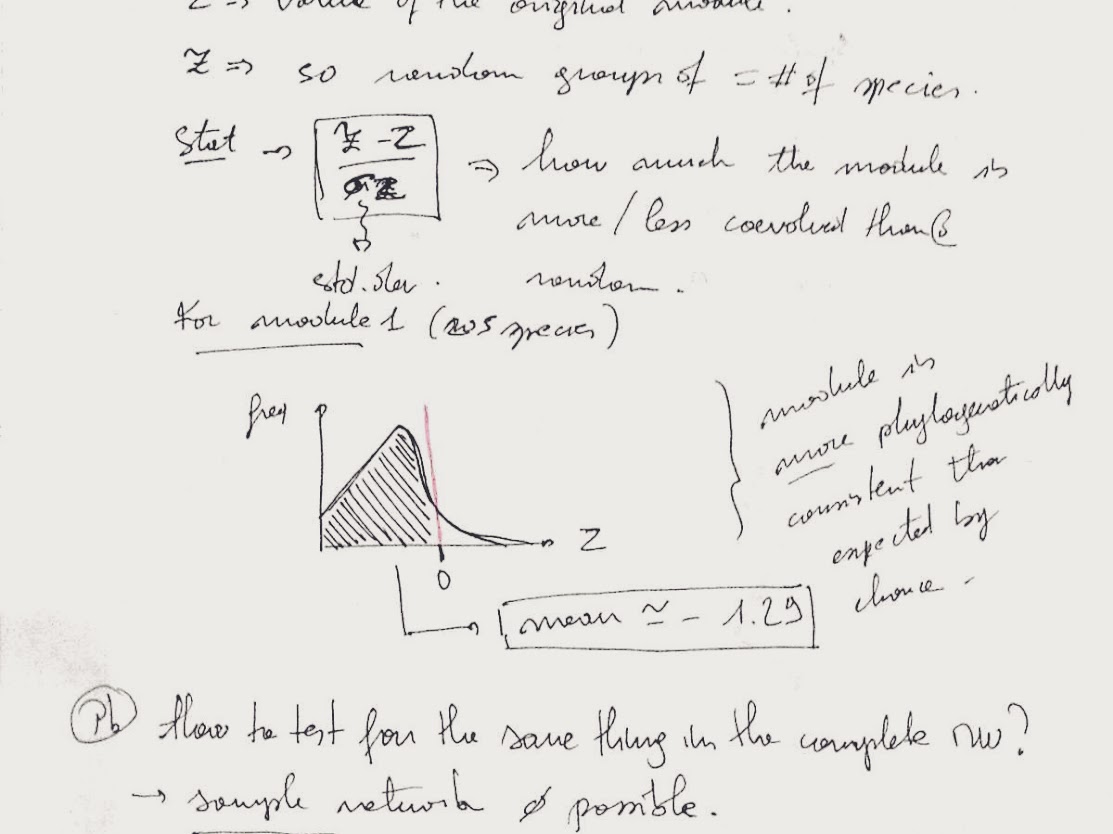 Z => value of the original module.
Z => so random groups of = # of species.
Stat → Z - Z / σZ => how much the module is
more / less coevolved than @
std. dev. random.
For module 1 (205 species)
freq
Z
0
mean ≃ - 1.29
module is
more phylogenetically
consistent than
expected by
chance.
Pb How to test for the same thing in the complete nw?
→ sample network ∅ possible.